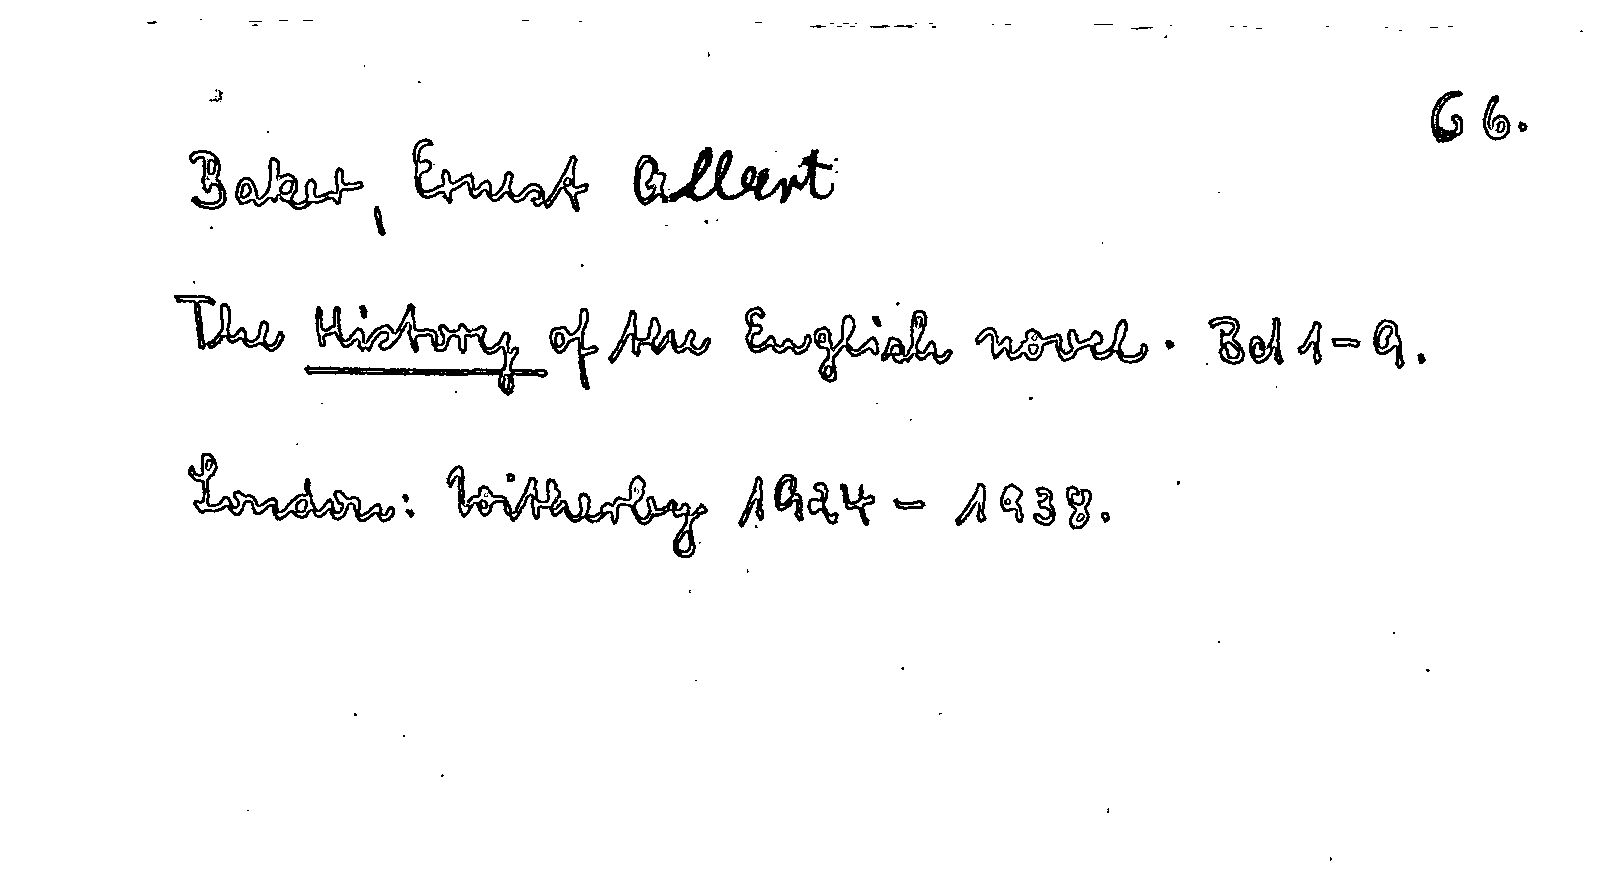 G 6.
Baker, Ernest Albert
The History of the English novel. Bd 1-9.
London: Witherby 1924 - 1938.